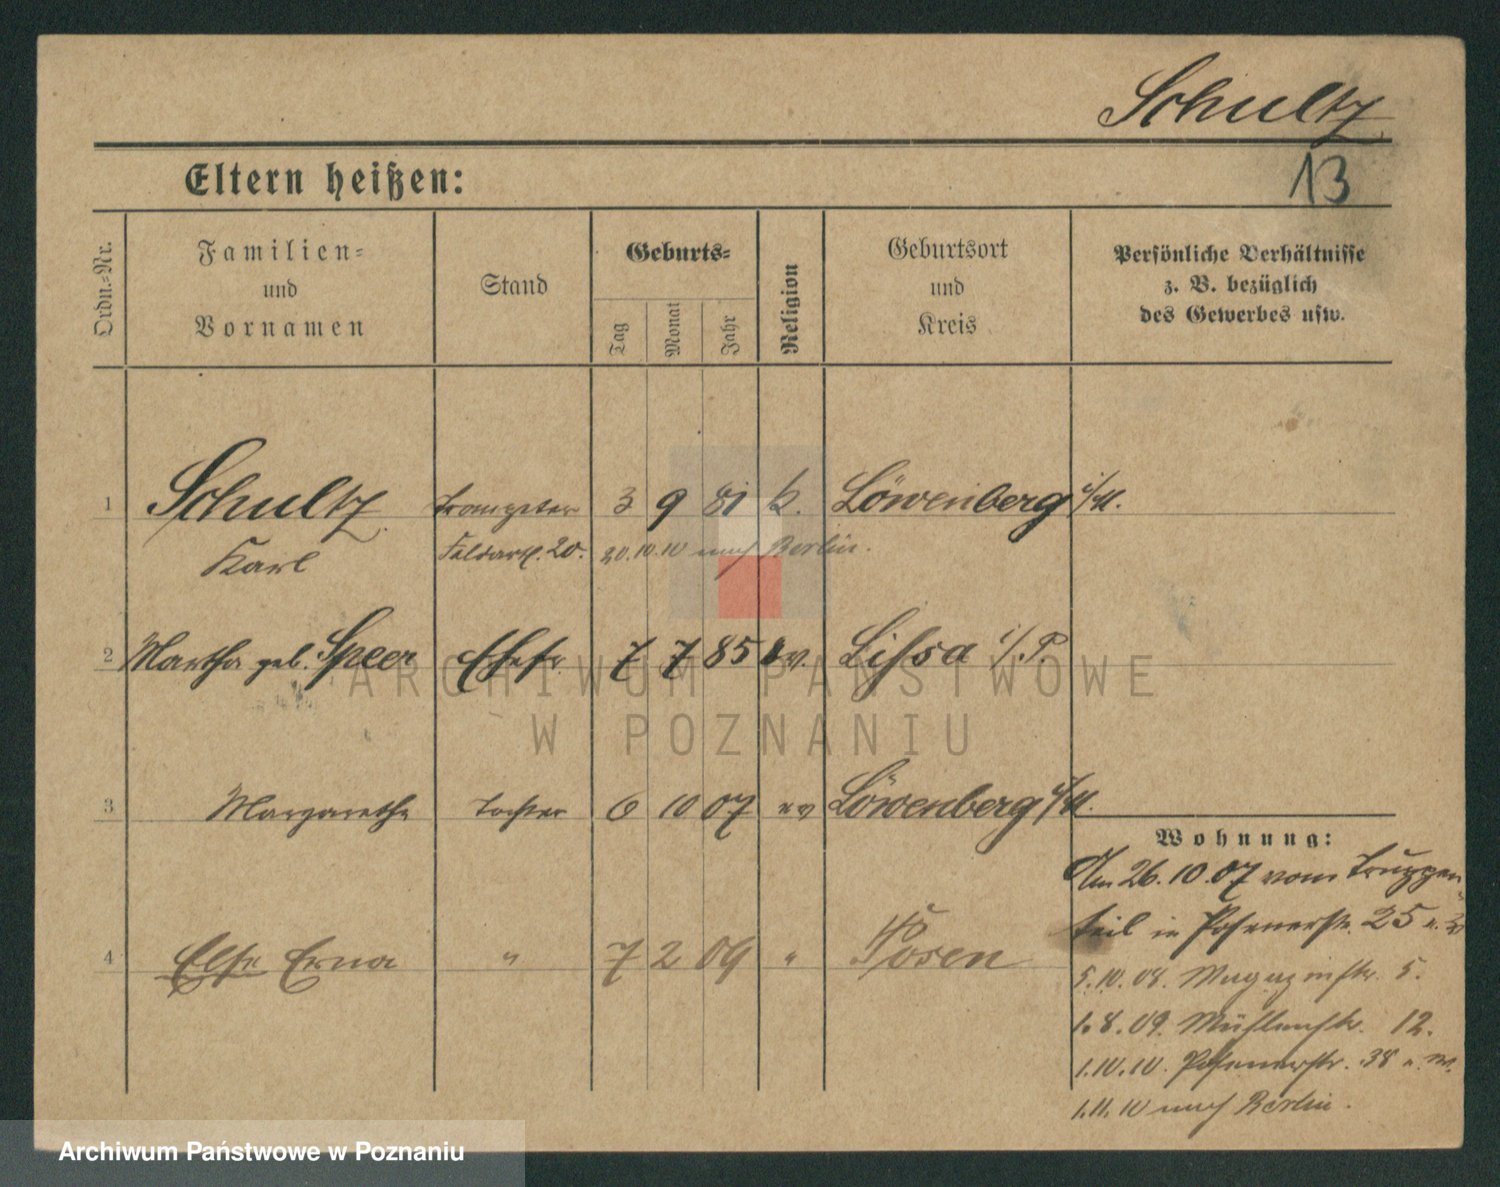 Schultz
13
Eltern heißen:
Ordn.-Nr.
Familien-
und
Vornamen
Stand
Geburts-
Tag
Monat
Jahr
Religion
Geburtsort
und
Kreis
Persönliche Verhältnisse
z. B. bezüglich
des Gewerbes usw.
1 Schultz Trompeter 3 9 81 k. Löwenberg i/M.
Karl Feldartl. 20. 20.10.10 nach Berlin.
2 Martha geb. Speer Ehefr. 7 7 85 ev. Lissa i/P.
3 Margarethe Tochter 6 10 07 ev Löwenberg i/M.
4 Else Erna " 7 2 09 " Posen
Wohnung:
Am 26.10.07 vom Truppen-
teil in Posenerstr. 25
5.10.08. Magazinstr. 5.
1.8.09. Mühlenstr. 12.
1.10.10. Posenerstr. 38
1.11.10 nach Berlin.
ARCHIWUM PAŃSTWOWE
W POZNANIU
Archiwum Państwowe w Poznaniu